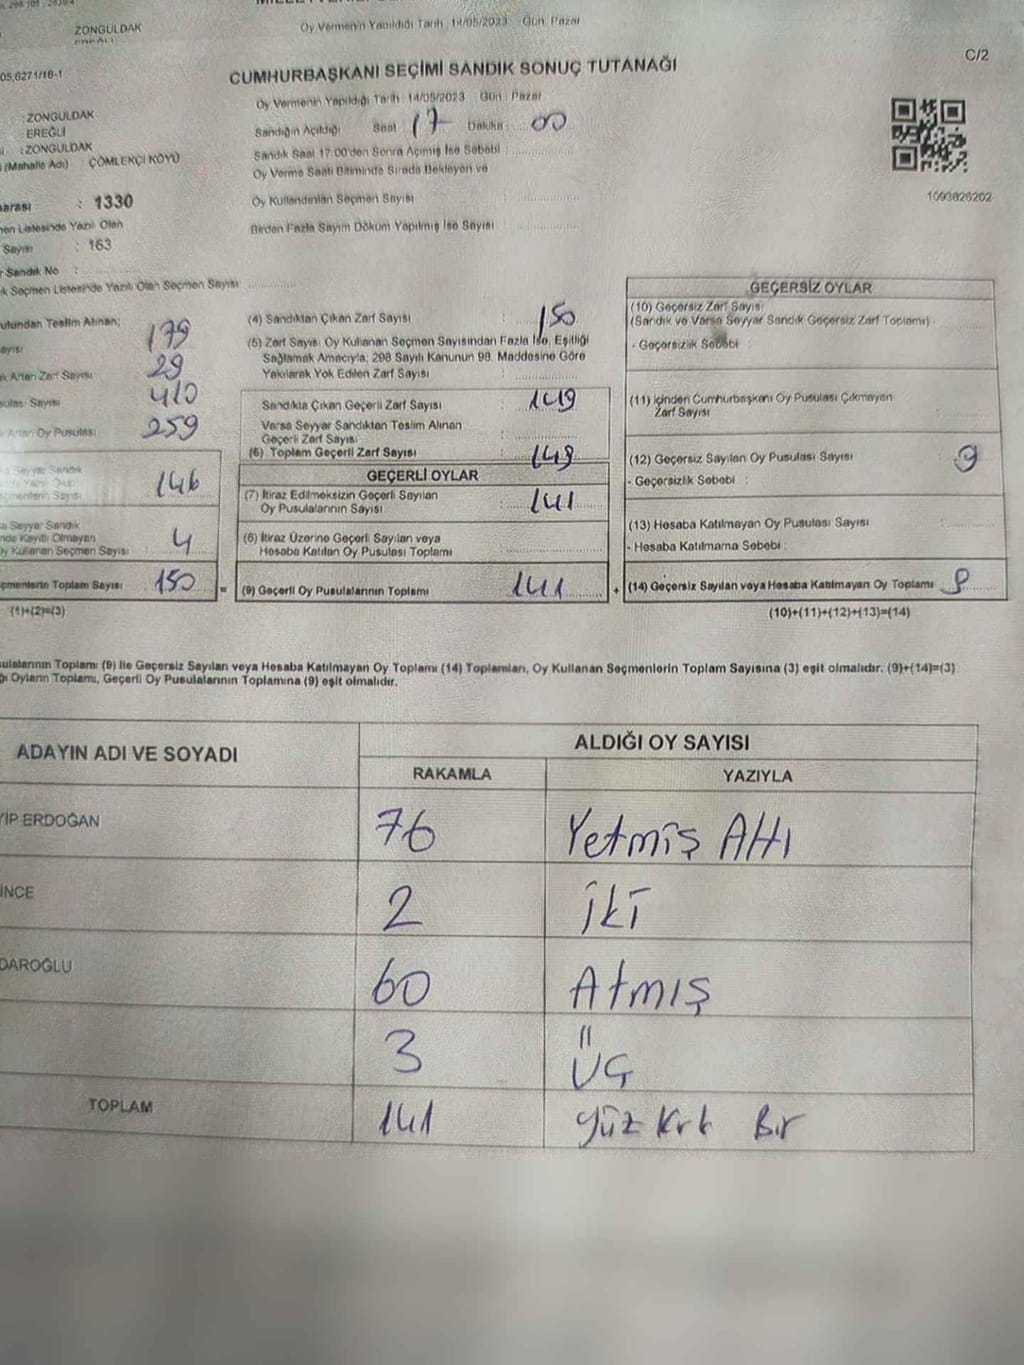 ZONGULDAK
Oy Vermenin Yapıldığı Tarih : 14/05/2023 Gün : Pazar
C/2
05,6271/16-1
CUMHURBAŞKANI SEÇİMİ SANDIK SONUÇ TUTANAĞI
Oy Vermenin Yapıldığı Tarih : 14/05/2023 Gün : Pazar
: ZONGULDAK
: EREĞLİ
: ZONGULDAK
(Mahalle Adı) ÇÖMLEKÇİ KÖYÜ
Sandığın Açıldığı Saat : 17 Dakika : 00
Sandık Saat 17:00'den Sonra Açılmış İse Sebebi :
Oy Verme Saati Bitiminde Sırada Bekleyen ve
Oy Kullandırılan Seçmen Sayısı :
Birden Fazla Sayım Döküm Yapılmış İse Sayısı :
1093826202
arası : 1330
en Listesinde Yazılı Olan
Sayısı : 163
r Sandık No :
k Seçmen Listesinde Yazılı Olan Seçmen Sayısı:
ulundan Teslim Alınan;
ayısı 179
k Artan Zarf Sayısı 29
sulası Sayısı 410
k Artan Oy Pusulası 259
a Seyyar Sandık
146
a Seyyar Sandık
nde Kayıtlı Olmayan
Oy Kullanan Seçmen Sayısı 4
çmenlerin Toplam Sayısı 150 =
(1)+(2)=(3)
(4) Sandıktan Çıkan Zarf Sayısı : 150
(5) Zarf Sayısı, Oy Kullanan Seçmen Sayısından Fazla İse, Eşitliği
Sağlamak Amacıyla; 298 Sayılı Kanunun 98. Maddesine Göre
Yakılarak Yok Edilen Zarf Sayısı :
Sandıkta Çıkan Geçerli Zarf Sayısı : 149
Varsa Seyyar Sandıktan Teslim Alınan
Geçerli Zarf Sayısı :
(6) Toplam Geçerli Zarf Sayısı : 149
GEÇERLİ OYLAR
(7) İtiraz Edilmeksizin Geçerli Sayılan
Oy Pusulalarının Sayısı : 141
(8) İtiraz Üzerine Geçerli Sayılan veya
Hesaba Katılan Oy Pusulası Toplamı :
(9) Geçerli Oy Pusulalarının Toplamı : 141 +
GEÇERSİZ OYLAR
(10) Geçersiz Zarf Sayısı
(Sandık ve Varsa Seyyar Sandık Geçersiz Zarf Toplamı) :
- Geçersizlik Sebebi :
(11) İçinden Cumhurbaşkanı Oy Pusulası Çıkmayan
Zarf Sayısı :
(12) Geçersiz Sayılan Oy Pusulası Sayısı : 9
- Geçersizlik Sebebi :
(13) Hesaba Katılmayan Oy Pusulası Sayısı :
- Hesaba Katılmama Sebebi :
(14) Geçersiz Sayılan veya Hesaba Katılmayan Oy Toplamı :
(10)+(11)+(12)+(13)=(14)
sulalarının Toplamı (9) ile Geçersiz Sayılan veya Hesaba Katılmayan Oy Toplamı (14) Toplamları, Oy Kullanan Seçmenlerin Toplam Sayısına (3) eşit olmalıdır. (9)+(14)=(3)
ğı Oyların Toplamı, Geçerli Oy Pusulalarının Toplamına (9) eşit olmalıdır.
ADAYIN ADI VE SOYADI ALDIĞI OY SAYISI
RAKAMLA YAZIYLA
YİP ERDOĞAN 76 Yetmiş Altı
İNCE 2 iki
DAROĞLU 60 Atmış
3 üç
TOPLAM 141 Yüz Kırk Bir